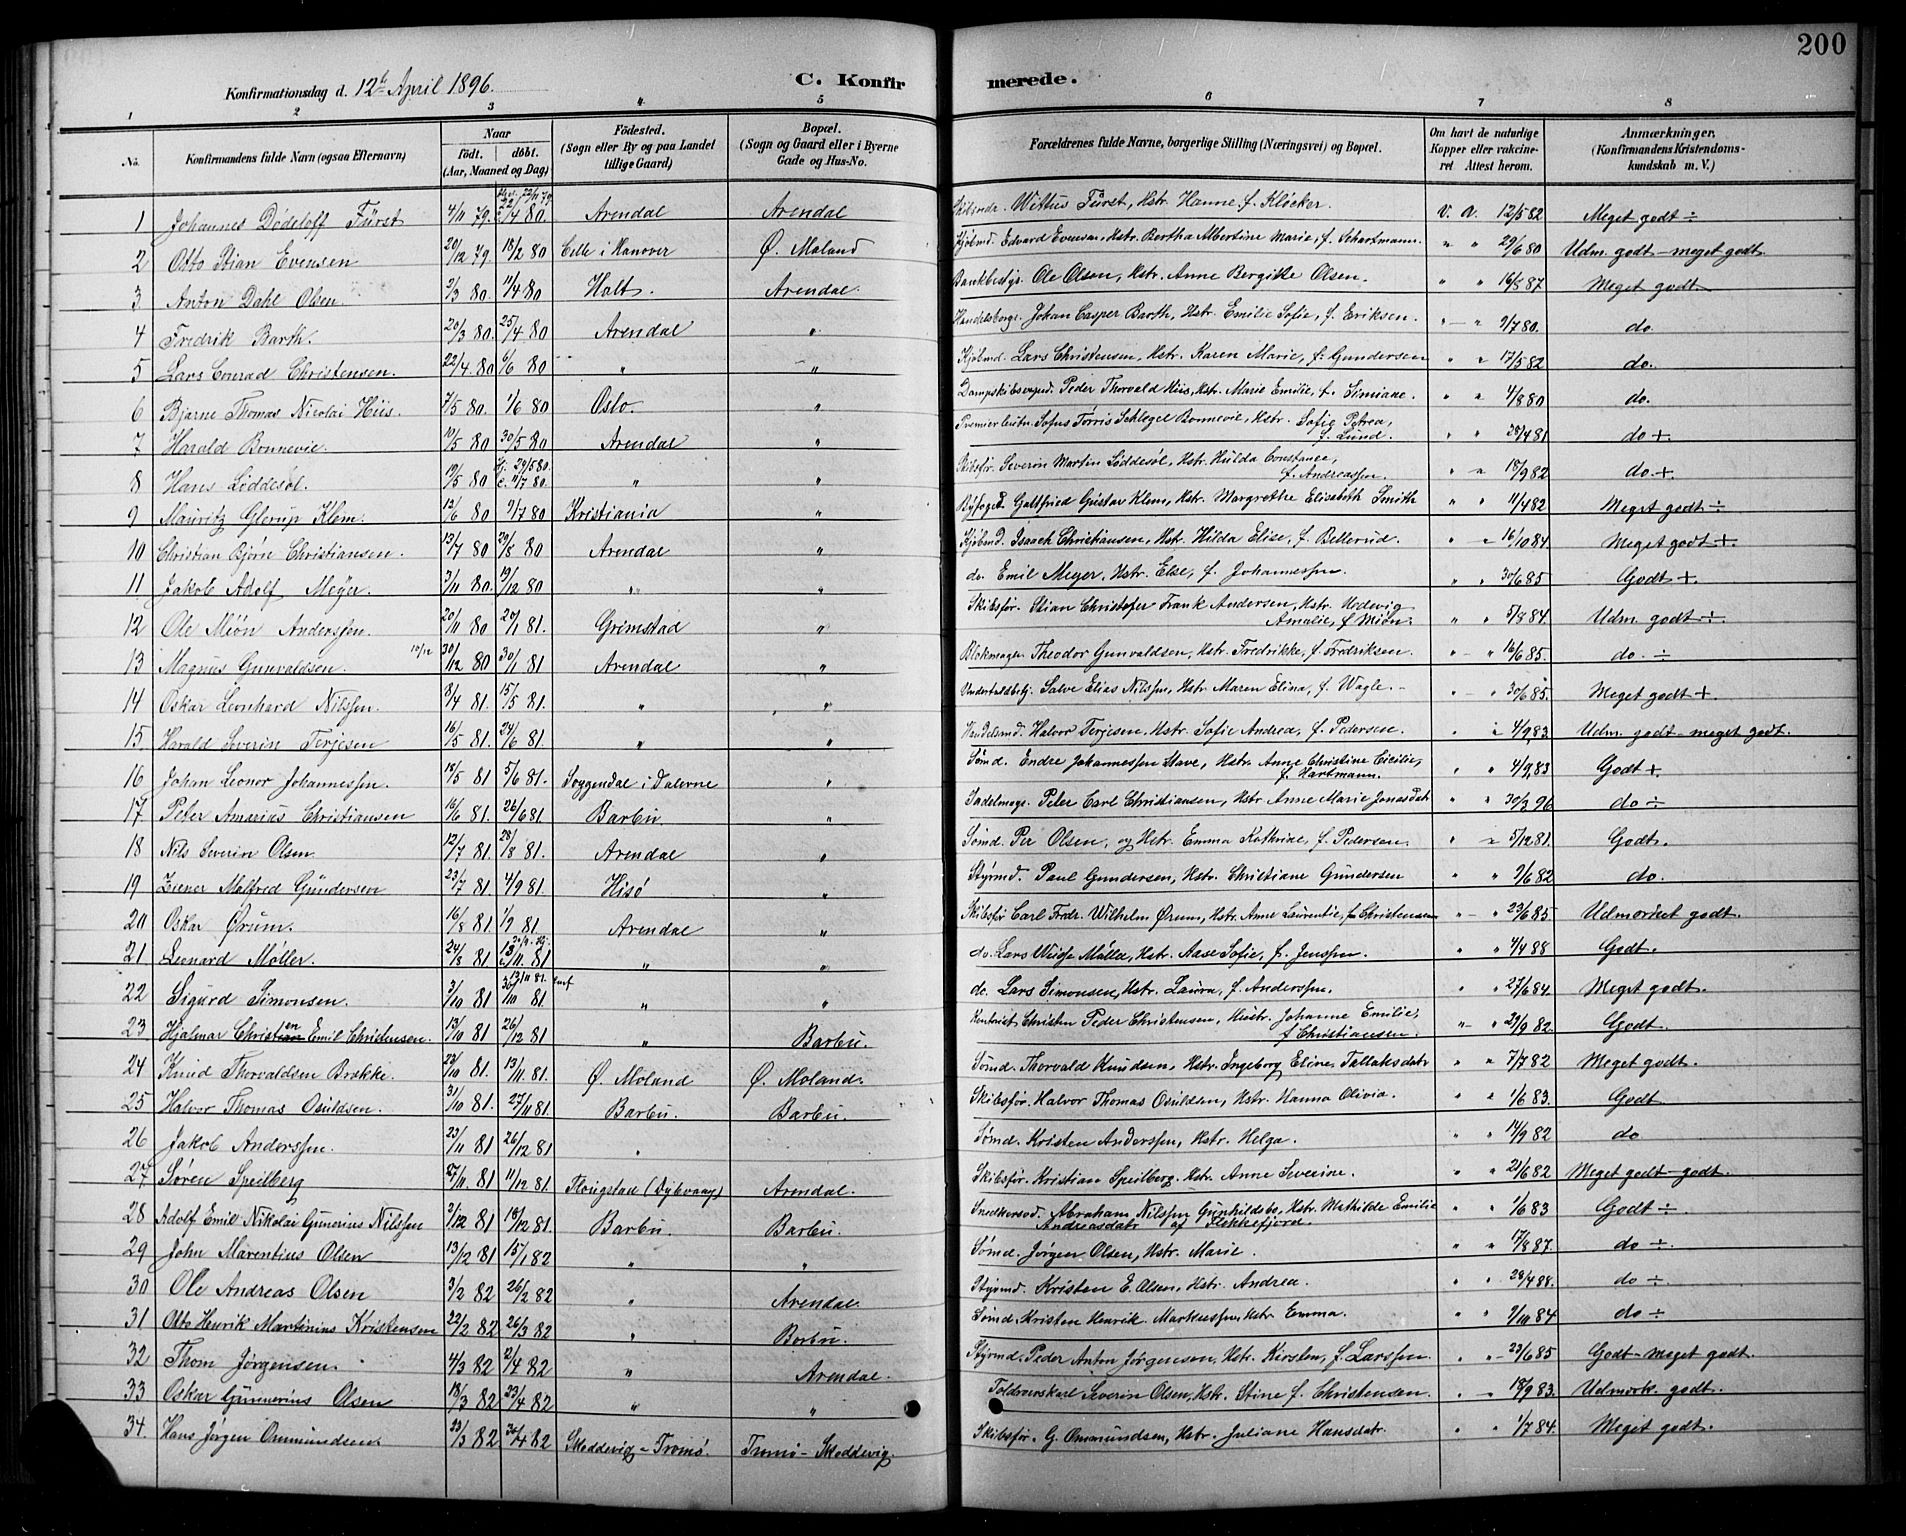 200
Konfirmationsdag d. 12te April 1896.
C. Konfirmerede.
1 2 3 4 5 6 7 8
No. Konfirmandens fulde Navn (ogsaa Efternavn) Naar födt. döbt. (Aar, Maaned og Dag) Födested. (Sogn eller By og paa Landet tillige Gaard) Bopæl. (Sogn og Gaard eller i Byerne Gade og Hus-No. Forældrenes fulde Navne, borgerlige Stilling (Næringsvei) og Bopæl. Om havt de naturlige Kopper eller vakcineret Attest herom. Anmærkninger. (Konfirmandens Kristendomskundskab m. V.)
1 Johannes Dödeloff Fürst 4/11 79. 80. Arendal Arendal Wittus Fürst, Hstr. Hanne f. Kløcker. v. a. 12/5 82 Meget godt ÷
2 Otto Stian Evensen 20/12 79. 18/2 80 Celle i Hanover Ø. Moland Kjøbmd. Edvard Evensen, Hstr. Bertha Albertine Marie, f. Schartmann. " " 29/6 80 Udm. godt - meget godt.
3 Anton Dahl Olsen. 2/3 80. 11/4 80 Holt. Arendal. Bankbestyr. Ole Olsen, Hstr. Anne Bergithe Olsen. " " 16/8 87 Meget godt.
4 Fredrik Barth. 20/3 80. 25/4 80 Arendal " Handelsborgr. Johan Casper Barth, Hstr. Emilie Sofie, f. Eriksen. " " 9/7 80. do.
5 Lars Conrad Christensen. 22/4 80 6/6 80 " " Kjøbmd. Lars Christensen, Hstr. Karen Marie, f. Gundersen " " 17/5 82 do.
6 Bjarne Thomas Nicolai Hiis. 7/5 80. 1/6 80 Oslo. " Peder Thorvald Hiis, Hstr. Marie Emilie, f. Simiane. " " 4/8 80 do.
7 Harald Bonnevie. 10/5 80. 30/5 80 Arendal " Premierleutn. Sofus Torris Schlegel Bonnevie, Hstr. Sofie Petrea, f. Lund. " " 28/4 81 do +.
8 Hans Löddesöl. 19/5 80 Hj. 29/5 80. C. 11/7 80. " " Skibsfør. Severin Martin Løddesøl, Hstr. Hulda Constance, f. Andreassen. " " 18/9 82 do. +
9 Mauritz Glerup Klem. 12/6 80 9/7 80 Kristiania " Byfoged Galtfried Gustav Klem, Hstr. Margrethe Elisabeth Smith " " 11/4 82 Meget godt ÷
10 Christian Bjørn Christiansen. 13/7 80 29/8 80 Arendal " Kjøbmd. Isaach Christiansen, Hstr. Hilda Elise, f. Bellerud. " " 16/10 84. Meget godt +.
11 Jakob Adolf Meyer. 3/11 80. 19/12 80 " " do. Emil Meyer, Hstr. Else, f. Johannessen. " " 30/6 85 Godt +.
12 Ole Miøn Anderssen. 20/11 80 20/1 81. Grimstad " Skibsfør. Stian Christofer Frank Andersen, Hstr. Hedevig Amalie, f. Miøn. " " 5/8 84. Udm. godt ÷.
13 Magnus Gunvaldsen. 10/12 30/12 80 30/1 81 Arendal " Blokmager Theodor Gunvaldsen, Hstr. Fredrikke, f. Fredriksen. " " 16/6 85. do. ÷
14 Oskar Leonhard Nilssen. 8/4 81 15/5 81. " " Salve Elias Nilssen, Hstr. Maren Elina, f. Wagle. " " 30/6 85. Meget godt +
15. Harald Severin Terjesen 16/5 81. 24/6 81. " " Handelsmd. Halvor Terjesen, Hstr. Sofie Andrea, f. Pedersen. " " 4/9 83. Udm. godt - meget godt.
16 Johan Leonor Johannessen. 18/5 81 5/6 81. Soggendal i Dalerne " Sømd. Endre Johannessen Stave, Hstr. Anne Christine Cicilie, f. Hartmann. " " 4/9 83 Godt +.
17 Peter Amarius Christiansen 16/6 81. 26/6 81 Barbu. " Sadelmagr. Peter Carl Christiansen, Hstr. Anne Marie Jonasdatr " " 30/3 96 do ÷
18 Nils Severin Olsen. 12/7 81. 28/8 81. Arendal " Sømd. Per Olsen, og Hstr. Emma Kathrine, f. Pedersen. " " 5/12 81. Godt.
19 Ziener Malfred Gündersen 23/7 81. 4/9 81. Hisö " Styrmd. Paul Gundersen, Hstr. Christiane Gundersen " " 2/6 82 do.
20 Oskar Ørum. 16/8 81. 1/9 81 Arendal " Skibsfør Carl Fredr. Wilhelm Ørum, Hstr. Anne Laurentie, f. Christensen " " 23/6 85 Udmærket godt.
21. Leonard Møller. 24/8 81 13/11. 81 " " do. Lars Møller, Hstr. Aase Sofie, f. Jenssen. " " 4/4 88 Godt.
22 Sigurd Simonsen. 3/10 81 13/11 81. 30/10 81 " " do. Lars Simonsen, Hstr. Laura, f. Anderssen. " " 27/6 84. Meget godt.
23 Hjalmar Christen Emil Christensen. 13/10 81 26/12 81 " Barbu. Kontorist Christen Peder Christensen, Hustr. Johanne Emilie, f. Christiansen. " " 29/9 82. Godt.
24 Knud Thorvaldsen Brække. 23/10 81. 13/11. 81. Ø. Moland Ø. Moland. Sømd. Thorvald Knudsen, Hstr. Ingeborg Eline Tallaksdatr " " 7/7 82 Meget godt.
25 Halvor Thomas Osuldsen. 31/10 81. 27/11 81. Barbu. Barbu. Skibsfør. Halvor Thomas Osulden, Hstr. Hanna Olivia. " " 1/6 83. Godt
26 Jakob Anderssen. 23/11 81 26/12 81 " " Sømd. Kristen Anderssen, Hstr. Helga. " " 14/9 82 do
27 Søren Speilberg 27/11 81 11/12 81. (Dybvaag) Arendal. Skibsfør. Kristian Speilberg, Hstr. Anne Severine. " " 21/6 82 Meget godt - godt.
28 Adolf Emil Nikolai Gunerius Nilssen 2/12 81 18/12 81. Barbu. Barbu. Snedkersvd. Abraham Nilssen Gunhildsbo, Hstr. Mathilde Emilie Andreasdatr af Flekkefjord. " " 1/6 83 Godt ÷
29 John Marentius Olsen 13/12 81 15/1 82 " " Sømd. Jörgen Olsen, Hstr. Marie. " " 17/8 87. do ÷.
30 Ole Andreas Olsen 3/2 82 26/2 82 " Arendal. Styrmd. Kristen E. Olsen, Hstr. Andrea. " " 28/4 88. do ÷
31 Otto Henrik Martinius Kristensen 22/2 82 26/3 82 " Barbu. Sømd. Kristen Henrik Markussen, Hstr. Emma. " " 9/10 84 do ÷
32 Thom Jørgensen. 4/3 82 2/4 82 " Arendal. Styrmd. Peder Anton Jørgensen, Hstr. Kirsten, f. Larssen. " " 23/6 85 Godt - meget godt.
33 Oskar Gunnerius Olsen 18/3 82 23/4 82 " " Toldroerskarl Severin Olsen, Hstr. Stine f. Christensen. " " 18/9 83. Udmærk. godt.
34. Hans Jørgen Ommundsen. 23/3 82 30/4 82 Skoddevig - Tromö. Tromö - Skoddevig Skibsfør. G. Ommundsen, Hstr. Juliane Hansdatr. " " 1/7 84. Meget godt.